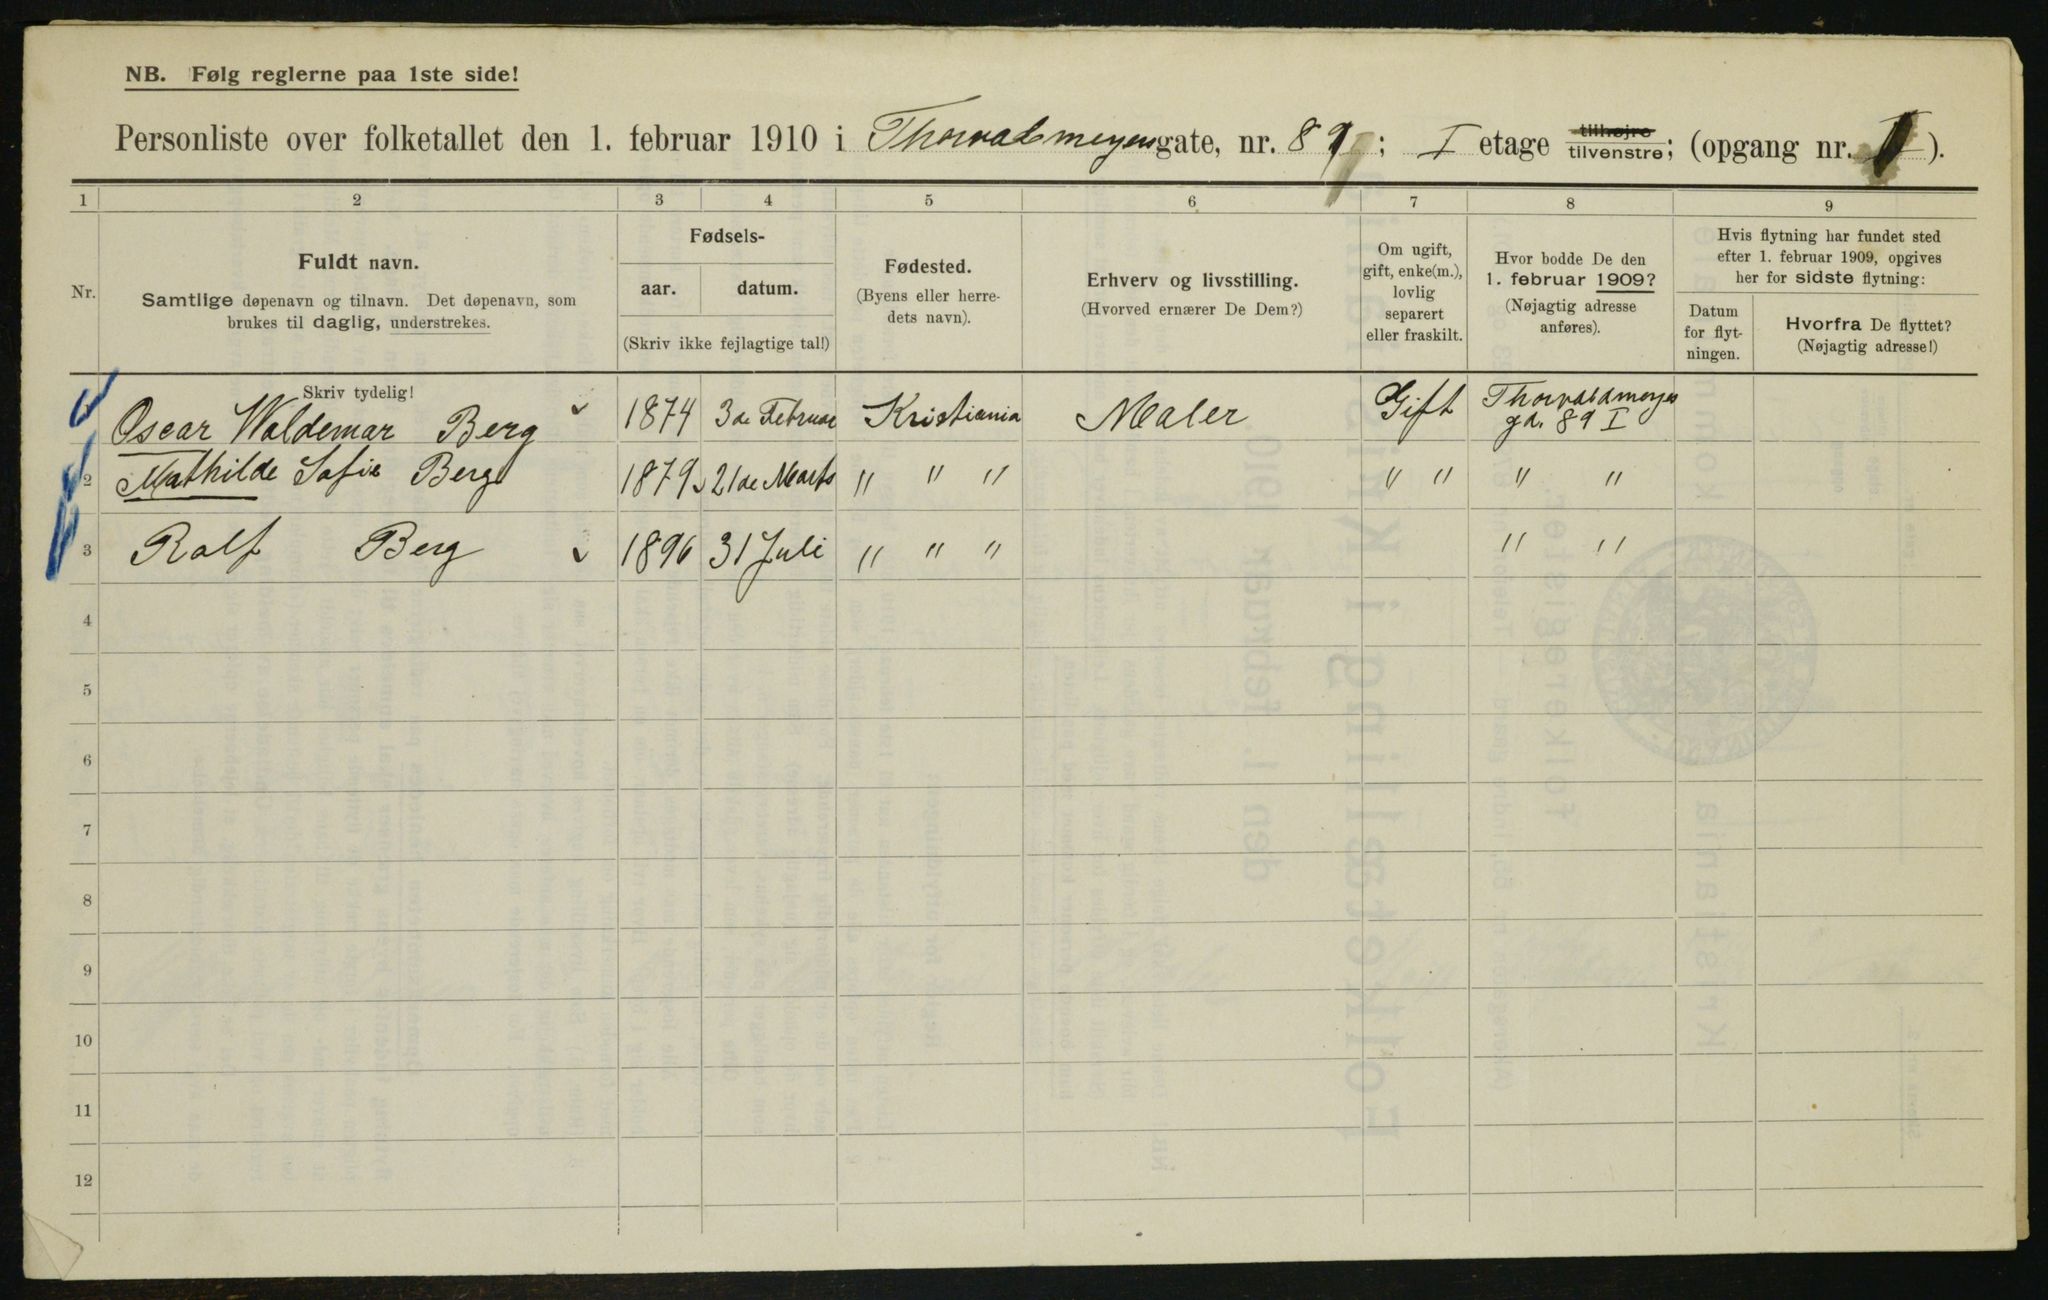 NB. Følg reglerne paa 1ste side!
Personliste over folketallet den 1. februar 1910 i Thorvaldmeyersgate, nr. 89; I etage tilhøjre tilvenstre; (opgang nr. ).
1 2 3 4 5 6 7 8 9
Nr.
Fuldt navn.
Samtlige døpenavn og tilnavn. Det døpenavn, som
brukes til daglig, understrekes.
Fødsels-
aar. datum.
(Skriv ikke fejlagtige tal!)
Fødested.
(Byens eller herre-
dets navn).
Erhverv og livsstilling.
(Hvorved ernærer De Dem?)
Om ugift,
gift, enke(m.),
lovlig
separert
eller fraskilt.
Hvor bodde De den
1. februar 1909?
(Nøjagtig adresse
anføres).
Hvis flytning har fundet sted
efter 1. februar 1909, opgives
her for sidste flytning:
Datum
for flyt-
ningen.
Hvorfra De flyttet?
(Nøjagtig adresse!)
Skriv tydelig!
Oscar Waldemar Berg 1874 3de Februar Kristiania Maler Gift Thorvaldmeyer
gd. 89 I
2 Mathilde Sofie Berg 1879 21de Marts " " " " " " "
3 Rolf Berg 1896 31 Juli " " " " "
4
5
6
7
8
9
10
11
12